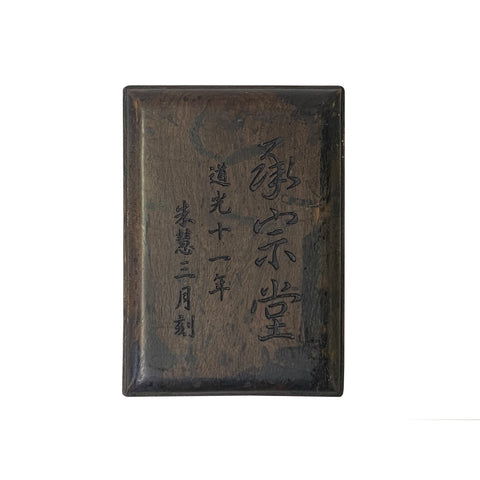 承宗堂
道光十一年
朱慧三月刻